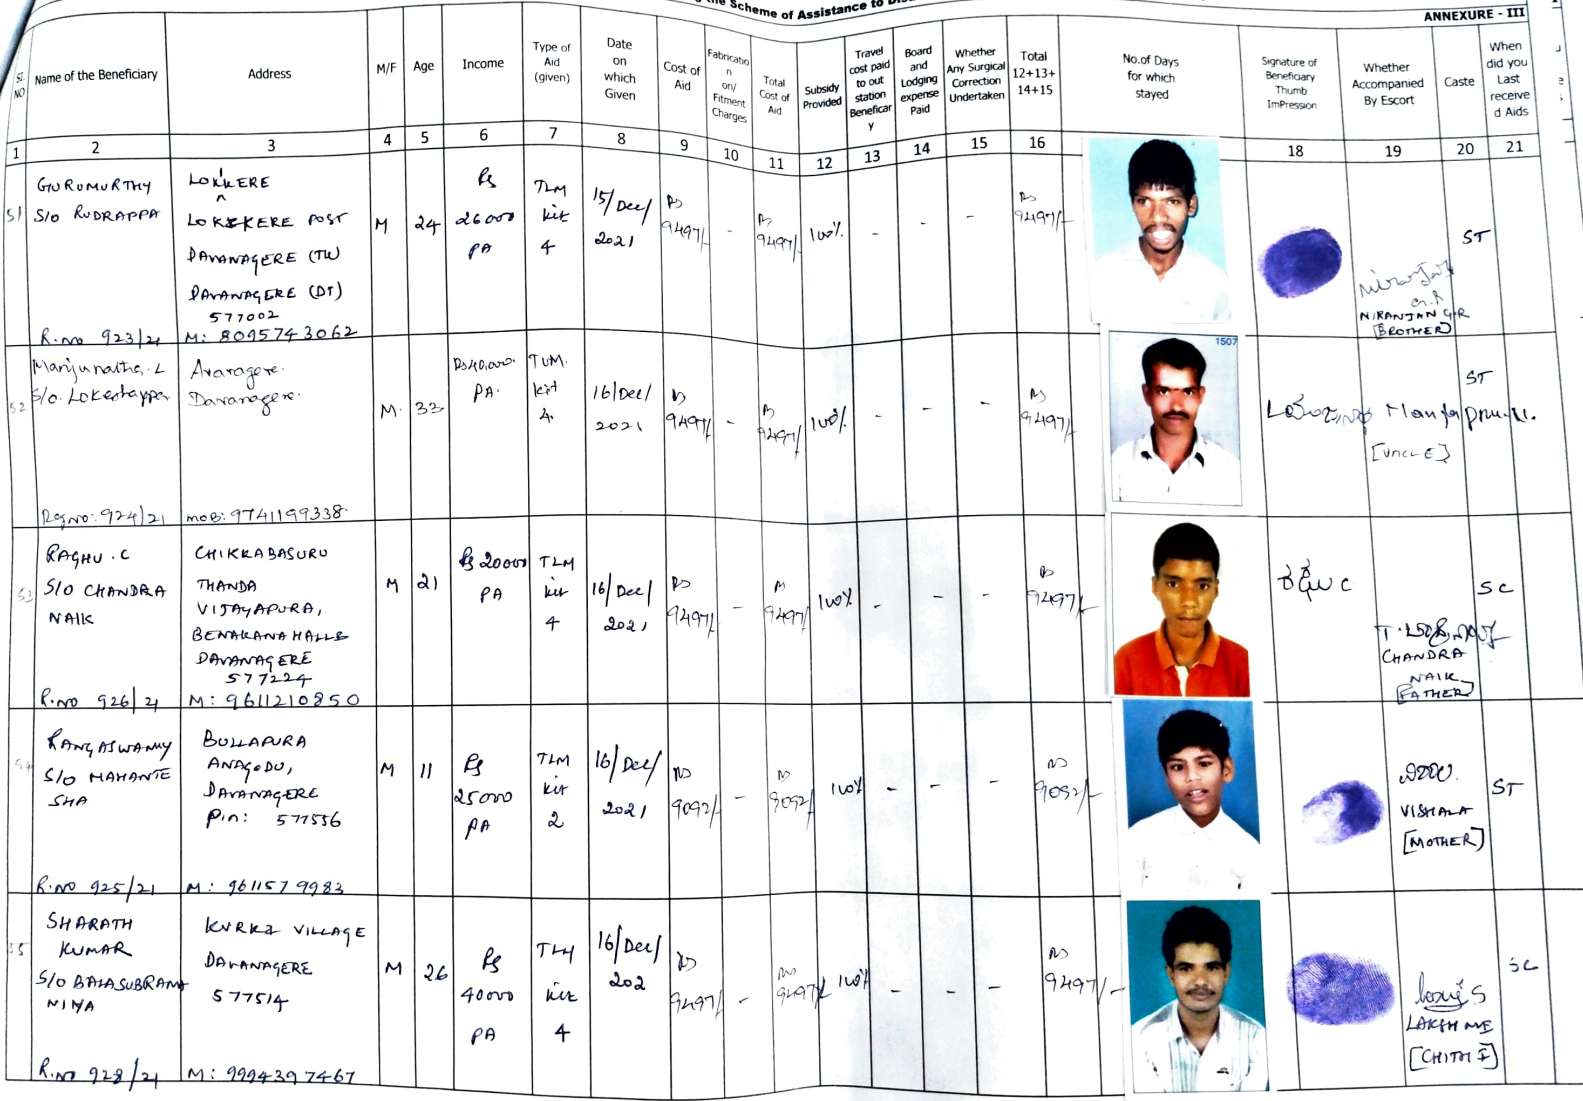 the Scheme of Assistance to
ANNEXURE - III
Sl. NO
Name of the Beneficiary
Address
M/F
Age
Income
Type of Aid (given)
Date on which Given
Cost of Aid
Fabricatio n on/ Fitment Charges
Total Cost of Aid
Subsidy Provided
Travel cost paid to out station Beneficar y
Board and Lodging expense Paid
Whether Any Surgical Correction Undertaken
Total 12+13+ 14+15
No.of Days for which stayed
Signature of Beneficiary Thumb ImPression
Whether Accompanied By Escort
Caste
When did you Last receive d Aids
1 2 3 4 5 6 7 8 9 10 11 12 13 14 15 16 18 19 20 21
51
GURUMURTHY
S/O RUDRAPPA
R.no 923/21
LOKKERE
LOKEKERE POST
DAVANAGERE (TW)
DAVANAGERE (DT)
577002
M: 8095743062
M
24
Rs
26000
PA
TLM
kit
4
15/Dec/
2021
Rs
9497/-
-
Rs
9497/-
100%
-
-
-
Rs
9497/-
NIRANJAN G.R
[BROTHER]
ST
52
Manjunatha. L
S/o. Lokeshappa
Reg no: 924/21
Avaragere.
Davanagere.
mob: 9741199338.
M.
33
Rs 40,000.
PA.
TLM.
kit
4.
16/Dec/
2021
Rs
9497/-
-
Rs
9497/-
100%
-
-
-
Rs
9497/-
1507
[UNCLE]
ST
53
RAGHU . C
S/O CHANDRA
NAIK
R.no 926/21
CHIKKABASURU
THANDA
VIJAYAPURA,
BENAKANAHALLE
DAVANAGERE
577224
M: 9611210850
M
21
Rs 20000
PA
TLM
kit
4
16/Dec/
2021
Rs
9497/-
-
Rs
9497/-
100%
-
-
-
Rs
9497/-
CHANDRA
NAIK
[FATHER]
SC
54
RANGASWAMY
S/O MAHANTE
SHA
R.no 925/21
BULLAPURA
ANAGODU,
DAVANAGERE
Pin: 577556
M: 9611579983
M
11
Rs
25000
PA
TLM
kit
2
16/Dec/
2021
Rs
9092/-
-
Rs
9092/-
100%
-
-
-
Rs
9092/-
VISHALA
[MOTHER]
ST
55
SHARATH
KUMAR
S/O BALASUBRAM
NIYA
R.no 928/21
KURKI VILLAGE
DAVANAGERE
577514
M: 9994397467
M
26
Rs
40000
PA
TLM
kit
4
16/Dec/
202
Rs
9497/-
-
Rs
9497/-
100%
-
-
-
Rs
9497/-
LAKSHMI
SC